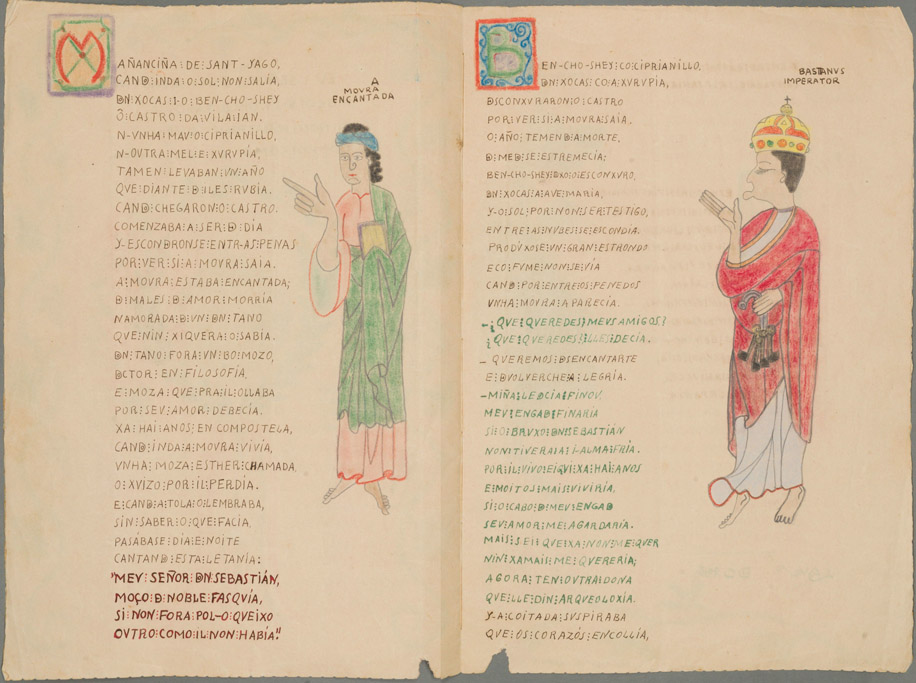 MAÑANCIÑA DE SANT-YAGO,
CAND INDA O SOL NON SALÍA,
DN XOCAS I O BEN-CHO-SHEY
Ó CASTRO DA VILA IAN.
N-VNHA MAV O CIPRIANILLO,
N-OVTRA MEL E XVRVPIA,
TAMEN LEVABAN VN AÑO
QVE DIANTE D ILES RVBIA.
CAND CHEGARON O CASTRO.
COMENZABA A SER D DIA
Y-ESCONDRONSE ENTR-AS PENAS
POR VER SI A MOVRA SAIA.
A MOVRA ESTABA ENCANTADA;
D MALES D AMOR MORRIA
NAMORADA D VN DN TANO
QVE NIN XIQVERA O SABIA.
DN TANO FORA VN BO MOZO,
DCTOR EN FILOSOFÍA,
E MOZA QVE PRA IL OLLABA
POR SEV AMOR DEBECÍA.
XA HAI ANOS EN COMPOSTELA,
CAND INDA A MOVRA VIVÍA,
VNHA MOZA ESTHER CHAMADA
O XVIZO POR IL PERDÍA.
E CAND A TOLA O LEMBRABA,
SIN SABER O QVE FACIA,
PASÁBASE DIA E NOITE
CANTAND ESTA LETANÍA:
"MEV SEÑOR DN SEBASTIÁN,
MOÇO D NOBLE FASQVÍA,
SI NON FORA POL-O QVEIXO
OVTRO COMO IL NON HABÍA."
A
MOVRA
ENCANTADA
BEN-CHO-SHEY CO CIPRIANÍLLO,
DN XOCAS CO A XVRVPIA,
DSCONXVRARON O CASTRO
POR VER SI A MOVRA SAIA.
O AÑO, TEMEND A MORTE,
D MED SE ESTREMECÍA;
BEN-CHO-SHEY DXO O ESCONXVRO,
DN XOCAS A AVE MARÍA,
Y-O SOL POR NON SER TESTIGO,
ENTRE AS NVBES SE ESCONDIA.
PRODVXOSE VN GRAN ESTRONDO
E CO FVME NON SE VÍA
CAND POR ENTRE OS PENEDOS
VNHA MOVRA APARECÍA.
-¿QVE QVEREDES MEVS AMIGOS?
¿QVE QVEREDES ILLES DECÍA.
- QVEREMOS DSENCANTARTE
E DVOLVERCHE A LEGRIA.
-MIÑA LEDCÍA FINOV,
MEV ENGAD FINARIA
SI O BRVXO DN SEBASTIÁN
NON TIVERA A I-ALMA FRÍA.
POR IL VIVO EIQVI XA HAI ANOS
E MOITOS MAIS VIVIRÍA,
SI O CABO D MEV ENGAD
SEV AMOR ME AGARDARÍA.
MAIS SEI QVE IXA NON ME QVER
NIN XAMAIS ME QVERERÍA;
AGORA TEN OVTRA DONA
QVE LLE DIN ARQVEOLOXÍA.
Y-A COITADA SVSPIRABA
QVE OS CORAZÓS ENCOLLÍA,
BASTANVS
IMPERATOR